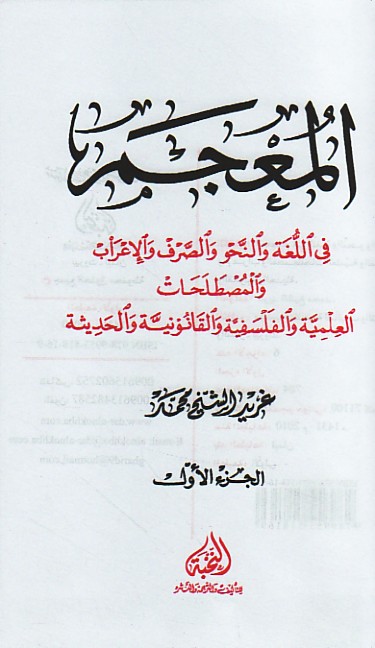 المُعْجَم
في اللُّغَة وَالنَّحْو وَالصَّرْف وَالإعْرَاب
وَالمُصْطَلَحَات
العِلْمِيَّة وَالفَلْسَفِيَّة وَالقَانُونِيَّة وَالحَدِيثَة
غريد الشيخ محمد
الجزء الأوّل
النخبة
للتأليف والترجمة والنشر